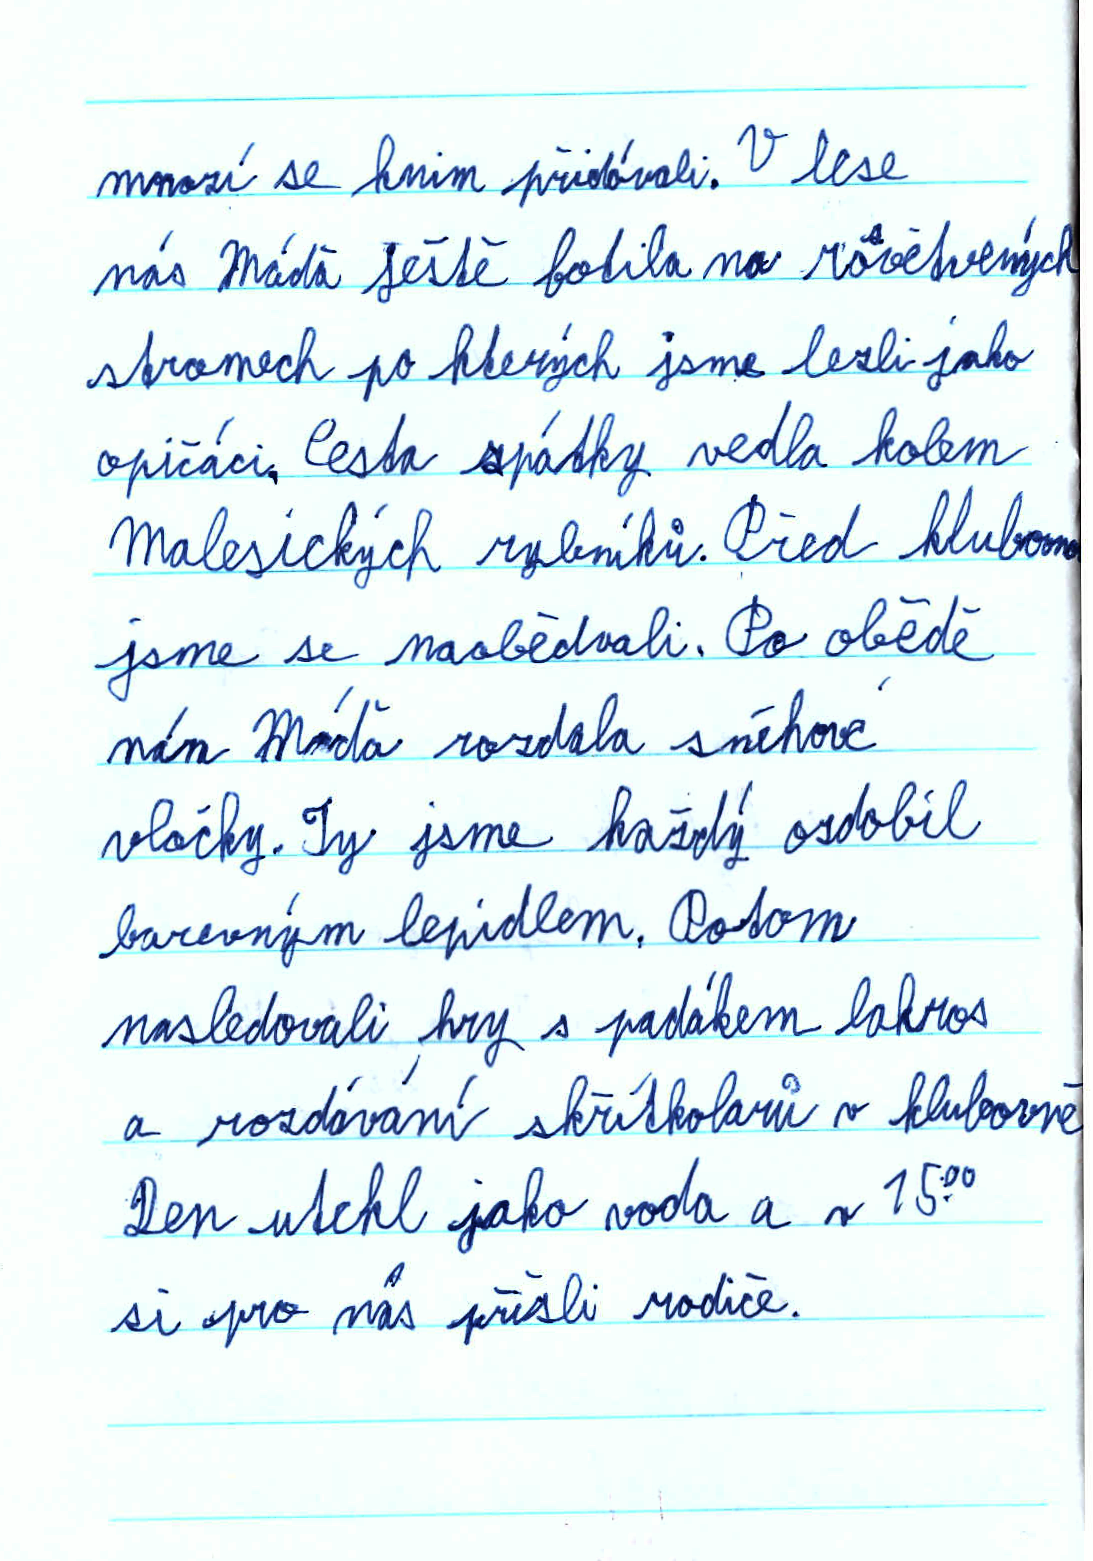 mnozí se knim přidávali. V lese
nás Máďa ještě fotila na rosvětvených
stromech po kterých jsme lezli jako
opičáci. Cesta spátky vedla kolem
Malesických rybníků. Před klubovnou
jsme se naobědvali. Po obědě
nám Máďa rozdala sněhové
vločky. Ty jsme každý ozdobil
barevným lepidlem. Potom
nasledovali hry s padákem lakros
a rozdávání skřítkolarů v klubovně
Den utekl jako voda a v 15:00
si pro nás přišli rodiče.